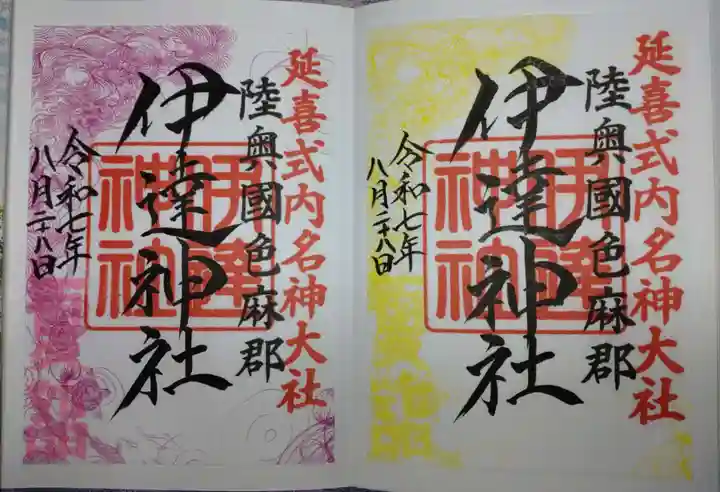 延喜式内名神大社
陸奥國色麻郡
伊達神社
令和七年
八月二十八日
伊達
神社
延喜式内名神大社
陸奥國色麻郡
伊達神社
令和七年
八月二十八日
伊達
神社